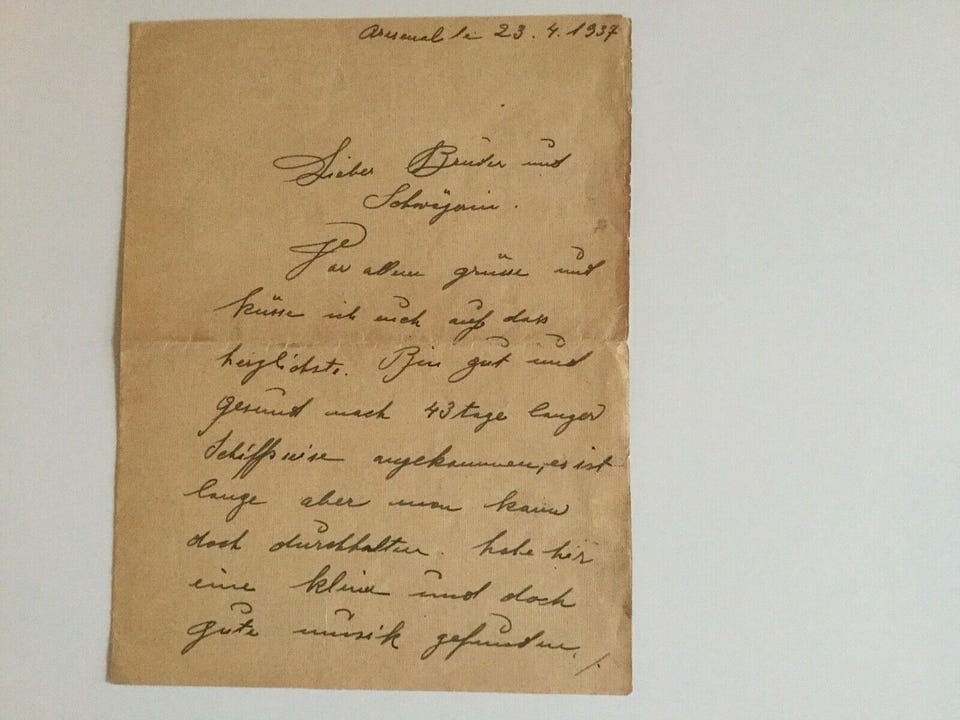 Arsenal le 23.4.1937
Lieber Bruder und
Schwägerin.
Vor allem grüsse und
küsse ich euch auf dass
herzlichste. Bin gut und
gesund nach 43 tage langer
Schiffreise angekommen, es ist
lange aber man kann
doch durchhalten. habe hir
eine kleine und doch
gute musik gefunden. /.